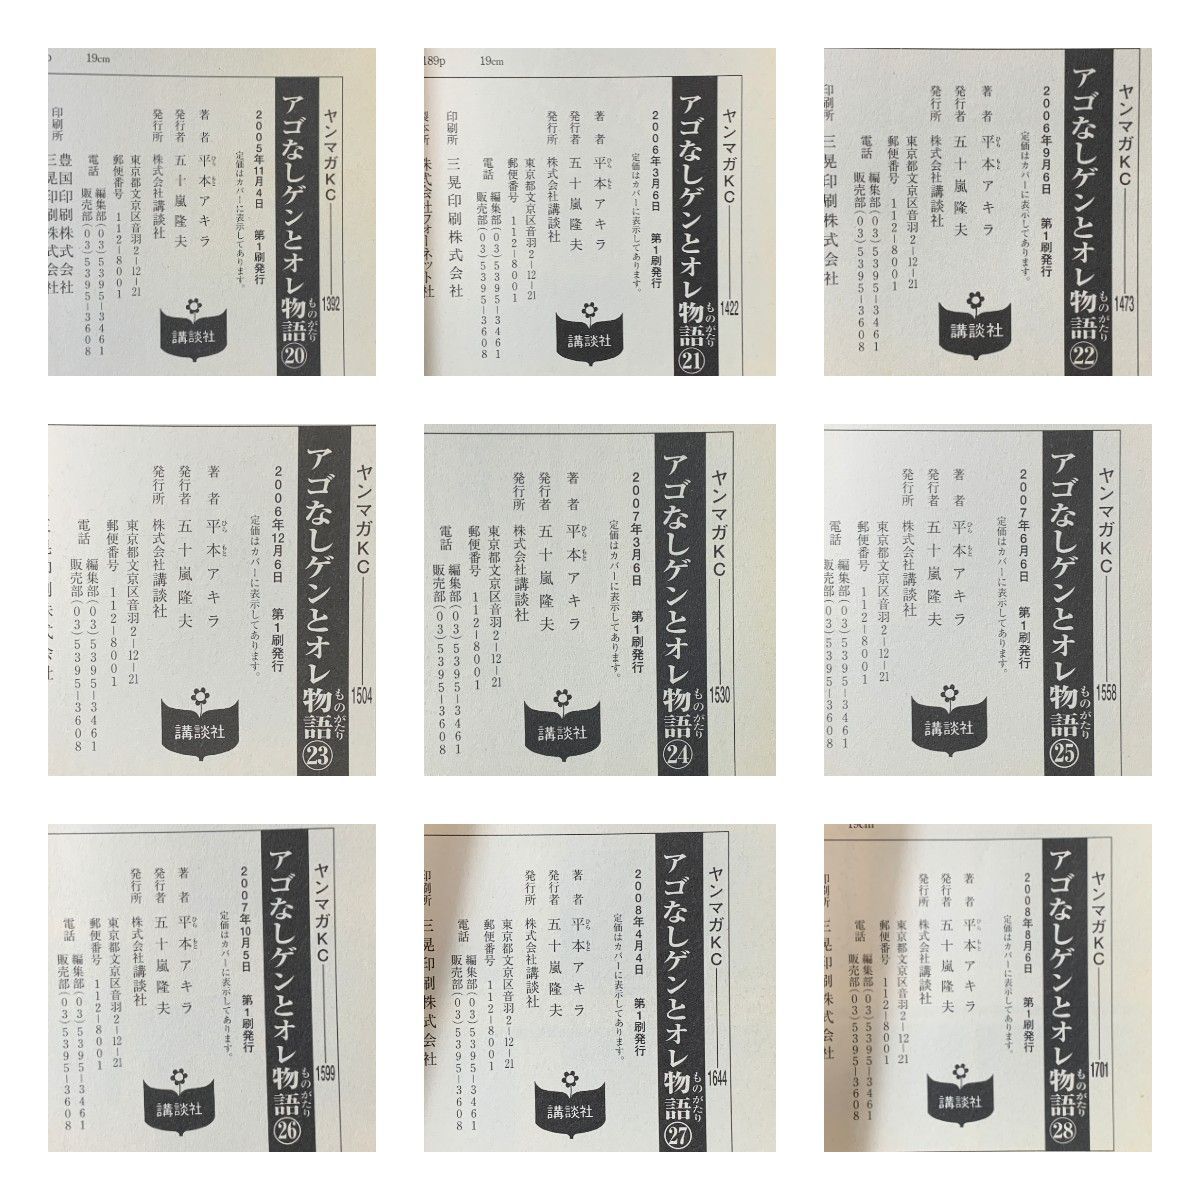 19cm
ヤンマガKC―1392
アゴなしゲンとオレ物語⑳
ものがたり
2005年11月4日 第1刷発行
定価はカバーに表示してあります。
著者 平本アキラ
ひら もと
発行者 五十嵐隆夫
発行所 株式会社講談社
東京都文京区音羽2-12-21
郵便番号 112-8001
電話 編集部(03)5395-3461
販売部(03)5395-3608
印刷所 豊国印刷株式会社
三晃印刷株式会社
講談社
189p 19cm
ヤンマガKC―1422
アゴなしゲンとオレ物語㉑
ものがたり
2006年3月6日 第1刷発行
定価はカバーに表示してあります。
著者 平本アキラ
ひら もと
発行者 五十嵐隆夫
発行所 株式会社講談社
東京都文京区音羽2-12-21
郵便番号 112-8001
電話 編集部(03)5395-3461
販売部(03)5395-3608
印刷所 三晃印刷株式会社
製本所 株式会社フォーネット社
講談社
ヤンマガKC―1473
アゴなしゲンとオレ物語㉒
ものがたり
2006年9月6日 第1刷発行
定価はカバーに表示してあります。
著者 平本アキラ
ひら もと
発行者 五十嵐隆夫
発行所 株式会社講談社
東京都文京区音羽2-12-21
郵便番号 112-8001
電話 編集部(03)5395-3461
販売部(03)5395-3608
印刷所 三晃印刷株式会社
講談社
ヤンマガKC―1504
アゴなしゲンとオレ物語㉓
ものがたり
2006年12月6日 第1刷発行
定価はカバーに表示してあります。
著者 平本アキラ
ひら もと
発行者 五十嵐隆夫
発行所 株式会社講談社
東京都文京区音羽2-12-21
郵便番号 112-8001
電話 編集部(03)5395-3461
販売部(03)5395-3608
講談社
ヤンマガKC―1530
アゴなしゲンとオレ物語㉔
ものがたり
2007年3月6日 第1刷発行
定価はカバーに表示してあります。
著者 平本アキラ
ひら もと
発行者 五十嵐隆夫
発行所 株式会社講談社
東京都文京区音羽2-12-21
郵便番号 112-8001
電話 編集部(03)5395-3461
販売部(03)5395-3608
講談社
ヤンマガKC―1558
アゴなしゲンとオレ物語㉕
ものがたり
2007年6月6日 第1刷発行
定価はカバーに表示してあります。
著者 平本アキラ
ひら もと
発行者 五十嵐隆夫
発行所 株式会社講談社
東京都文京区音羽2-12-21
郵便番号 112-8001
電話 編集部(03)5395-3461
販売部(03)5395-3608
講談社
ヤンマガKC―1599
アゴなしゲンとオレ物語㉖
ものがたり
2007年10月5日 第1刷発行
定価はカバーに表示してあります。
著者 平本アキラ
ひら もと
発行者 五十嵐隆夫
発行所 株式会社講談社
東京都文京区音羽2-12-21
郵便番号 112-8001
電話 編集部(03)5395-3461
販売部(03)5395-3608
講談社
ヤンマガKC―1644
アゴなしゲンとオレ物語㉗
ものがたり
2008年4月4日 第1刷発行
定価はカバーに表示してあります。
著者 平本アキラ
ひら もと
発行者 五十嵐隆夫
発行所 株式会社講談社
東京都文京区音羽2-12-21
郵便番号 112-8001
電話 編集部(03)5395-3461
販売部(03)5395-3608
印刷所 三晃印刷株式会社
講談社
19cm
ヤンマガKC―1701
アゴなしゲンとオレ物語㉘
ものがたり
2008年8月6日 第1刷発行
定価はカバーに表示してあります。
著者 平本アキラ
ひら もと
発行者 五十嵐隆夫
発行所 株式会社講談社
東京都文京区音羽2-12-21
郵便番号 112-8001
電話 編集部(03)5395-3461
販売部(03)5395-3608
印刷所 三晃印刷株式会社
講談社